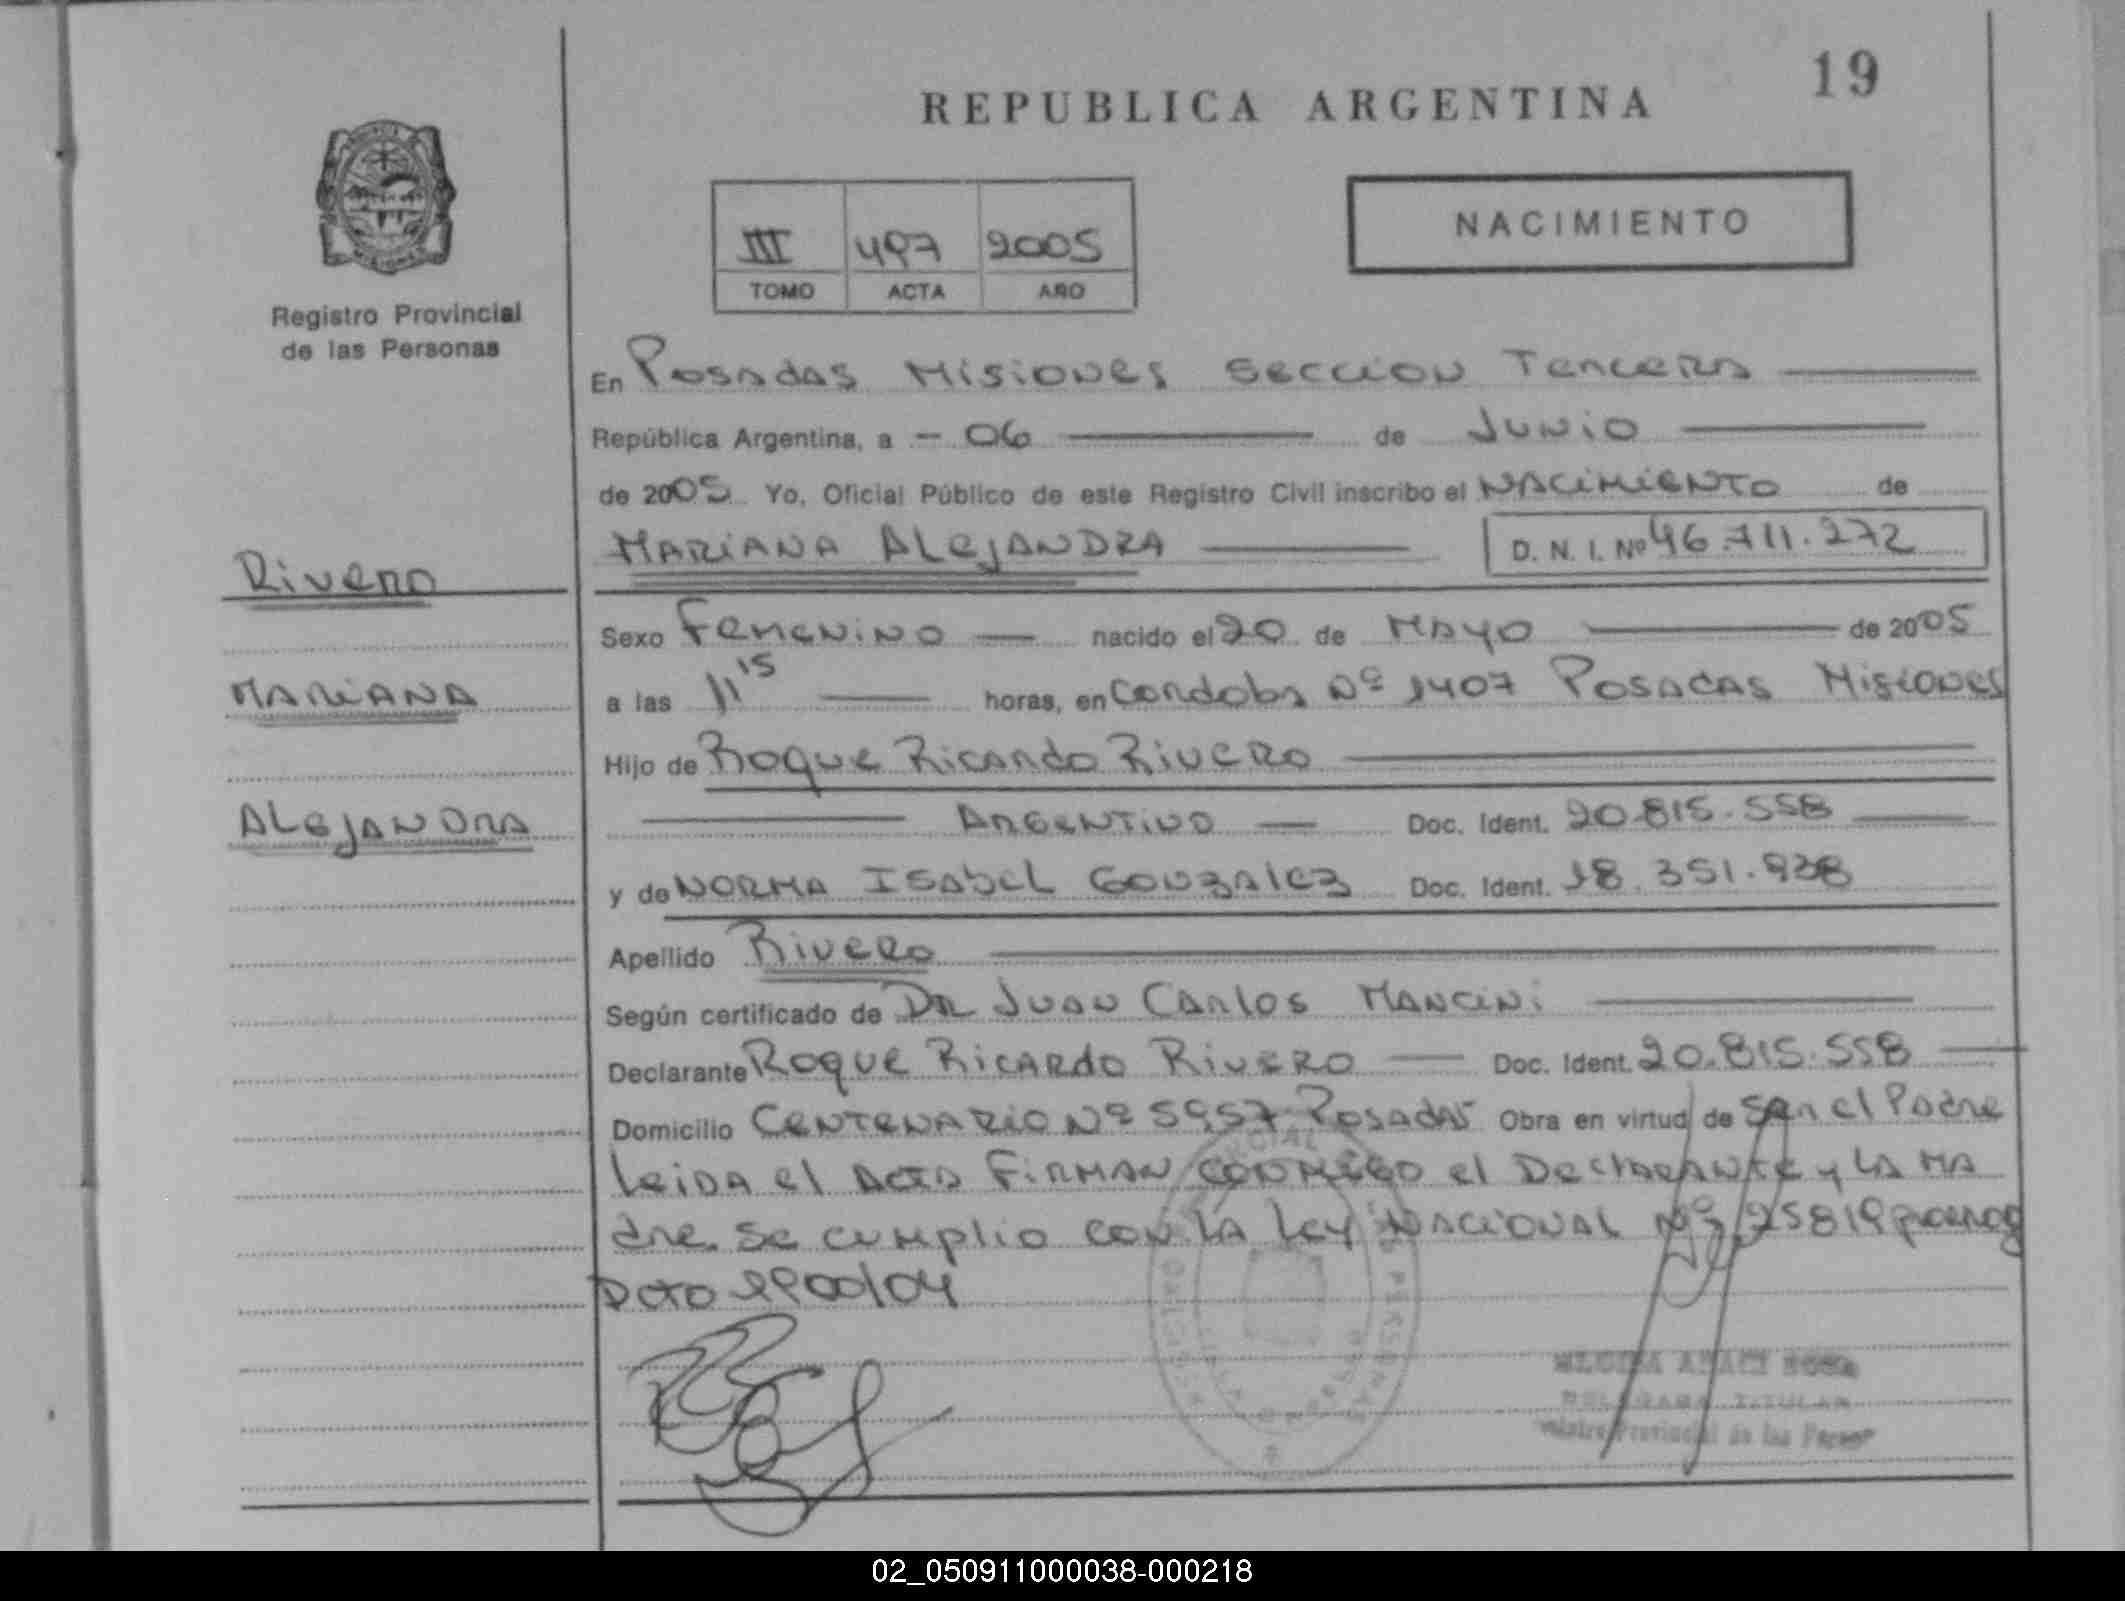 19
REPUBLICA ARGENTINA
NACIMIENTO
III 497 2005
TOMO ACTA AÑO
Registro Provincial
de las Personas
En Posadas Misiones Seccion Tercera
República Argentina, a - 06 de Junio
de 2005 Yo, Oficial Público de este Registro Civil inscribo el NACIMIENTO de
MARIANA ALEJANDRA D. N. I. Nº 46.711.272
Rivero
Sexo Femenino nacido el 20 de MAYO de 2005
MARIANA
a las 11 15 horas, en Cordoba Nº 1407 Posadas Misiones
Hijo de Roque Ricardo Rivero
ALEJANDRA
ARGENTINO Doc. Ident. 20.815.558
y de NORMA ISABEL GONZALEZ Doc. Ident. 18.351.938
Apellido Rivero
Según certificado de DR JUAN CARLOS MANCINI
Declarante Roque Ricardo Rivero Doc. Ident. 20.815.558
Domicilio CENTENARIO Nº 5957 Posadas Obra en virtud de ser el Padre
Leida el Acta FIRMAN CONMIGO el Declarante y LA MA
dre. Se cumplio con LA Ley NACIONAL Nº 25819
Dcto 1900/04
DELEGADA TITULAR
Registro Provincial de las Personas
02_050911000038-000218